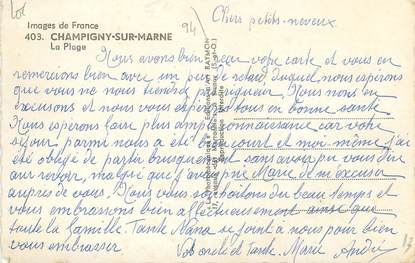 Lot
94
Images de France
403. CHAMPIGNY-SUR-MARNE
La Plage
Chers petits-neveux
Nous avons bien reçu votre carte et vous en
remercions bien avec un peu de retard duquel nous espérons
que vous ne nous tiendrez pas rigueur. Nous nous en
excusons et nous vous espérons tous en bonne santé
Nous espérons faire plus ample connaissance car votre
séjour parmi nous a été court et moi-même j'ai
été obligé de partir brusquement sans avoir pu vous dire
au revoir, malgré que j'ai Marie de m'excuser
auprès de vous. Nous vous souhaitons du beau temps et
vous embrassons bien affectueusement ainsi que
toute la famille. Tante Nana se joint à nous pour bien
vous embrasser
Vos oncle et tante. Marie André
RAYMON